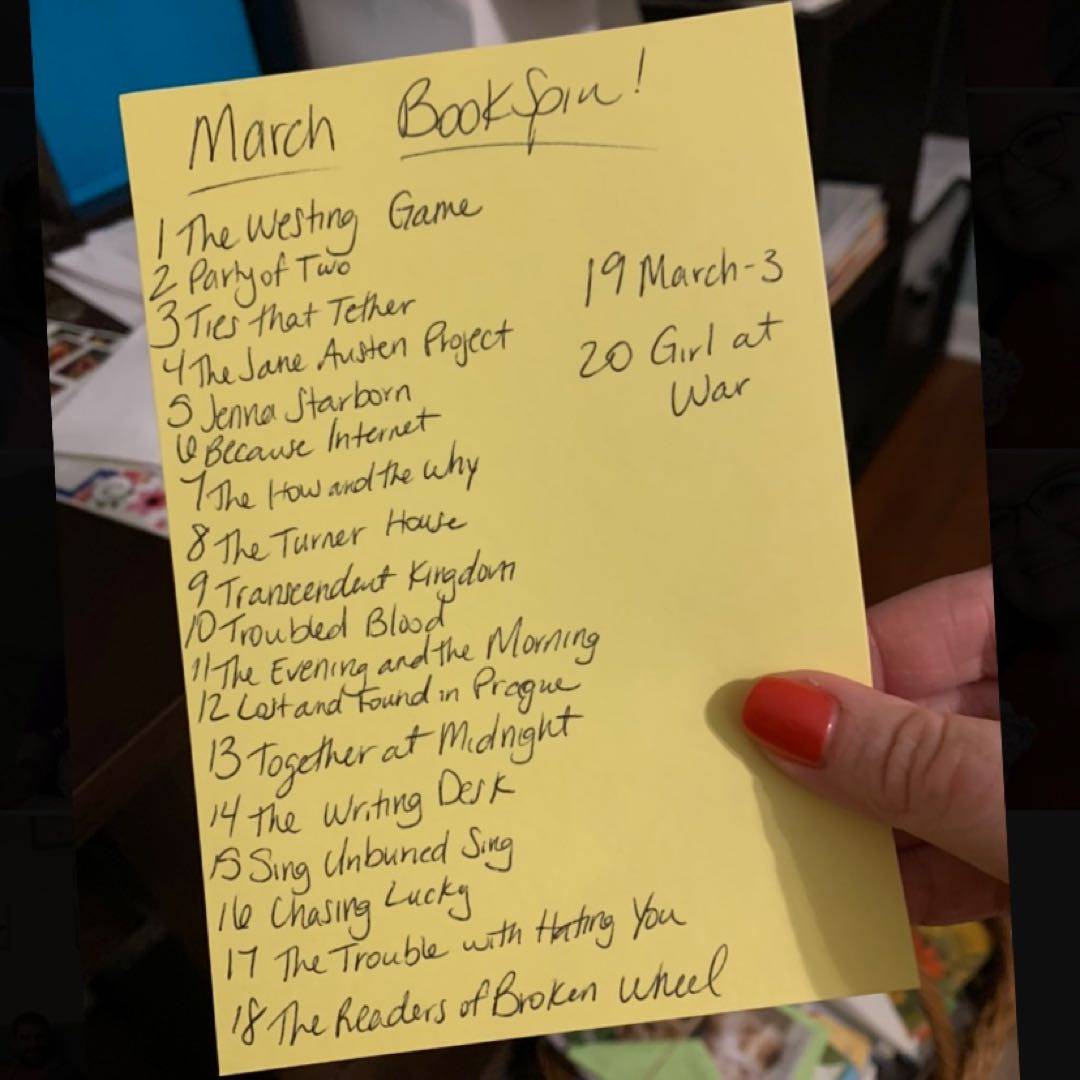 March BookSpin!
1 The Westing Game
2 Party of Two
3 Ties that Tether
4 The Jane Austen Project
5 Jenna Starborn
6 Because Internet
7 The How and the Why
8 The Turner House
9 Transcendent Kingdom
10 Troubled Blood
11 The Evening and the Morning
12 Lost and Found in Prague
13 Together at Midnight
14 The Writing Desk
15 Sing Unburied Sing
16 Chasing Lucky
17 The Trouble with Hating You
18 The Readers of Broken Wheel
19 March-3
20 Girl at
War